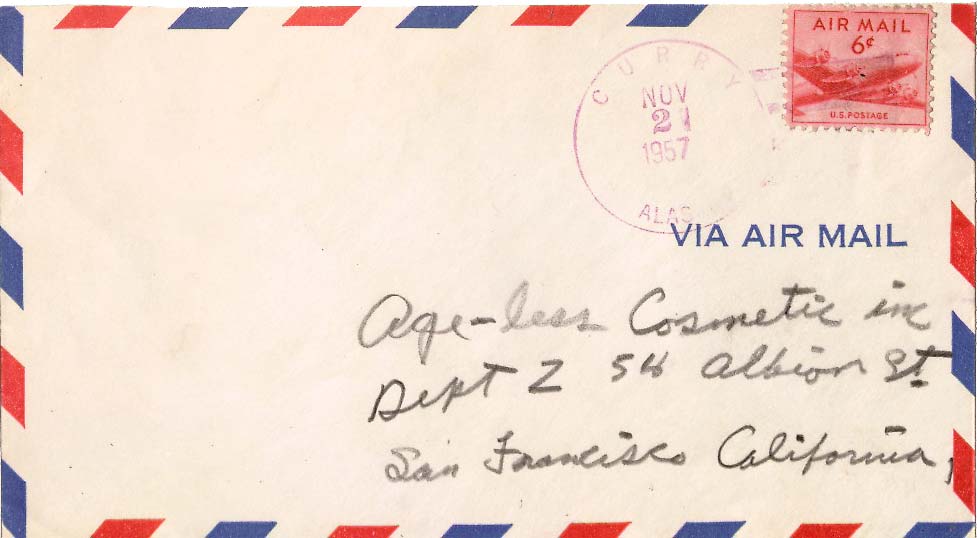 AIR MAIL
6¢
U.S. POSTAGE
CURRY
NOV
21
1957
ALAS
VIA AIR MAIL
Age-less Cosmetic inc
Dept Z 54 Albion St.
San Francisco California,